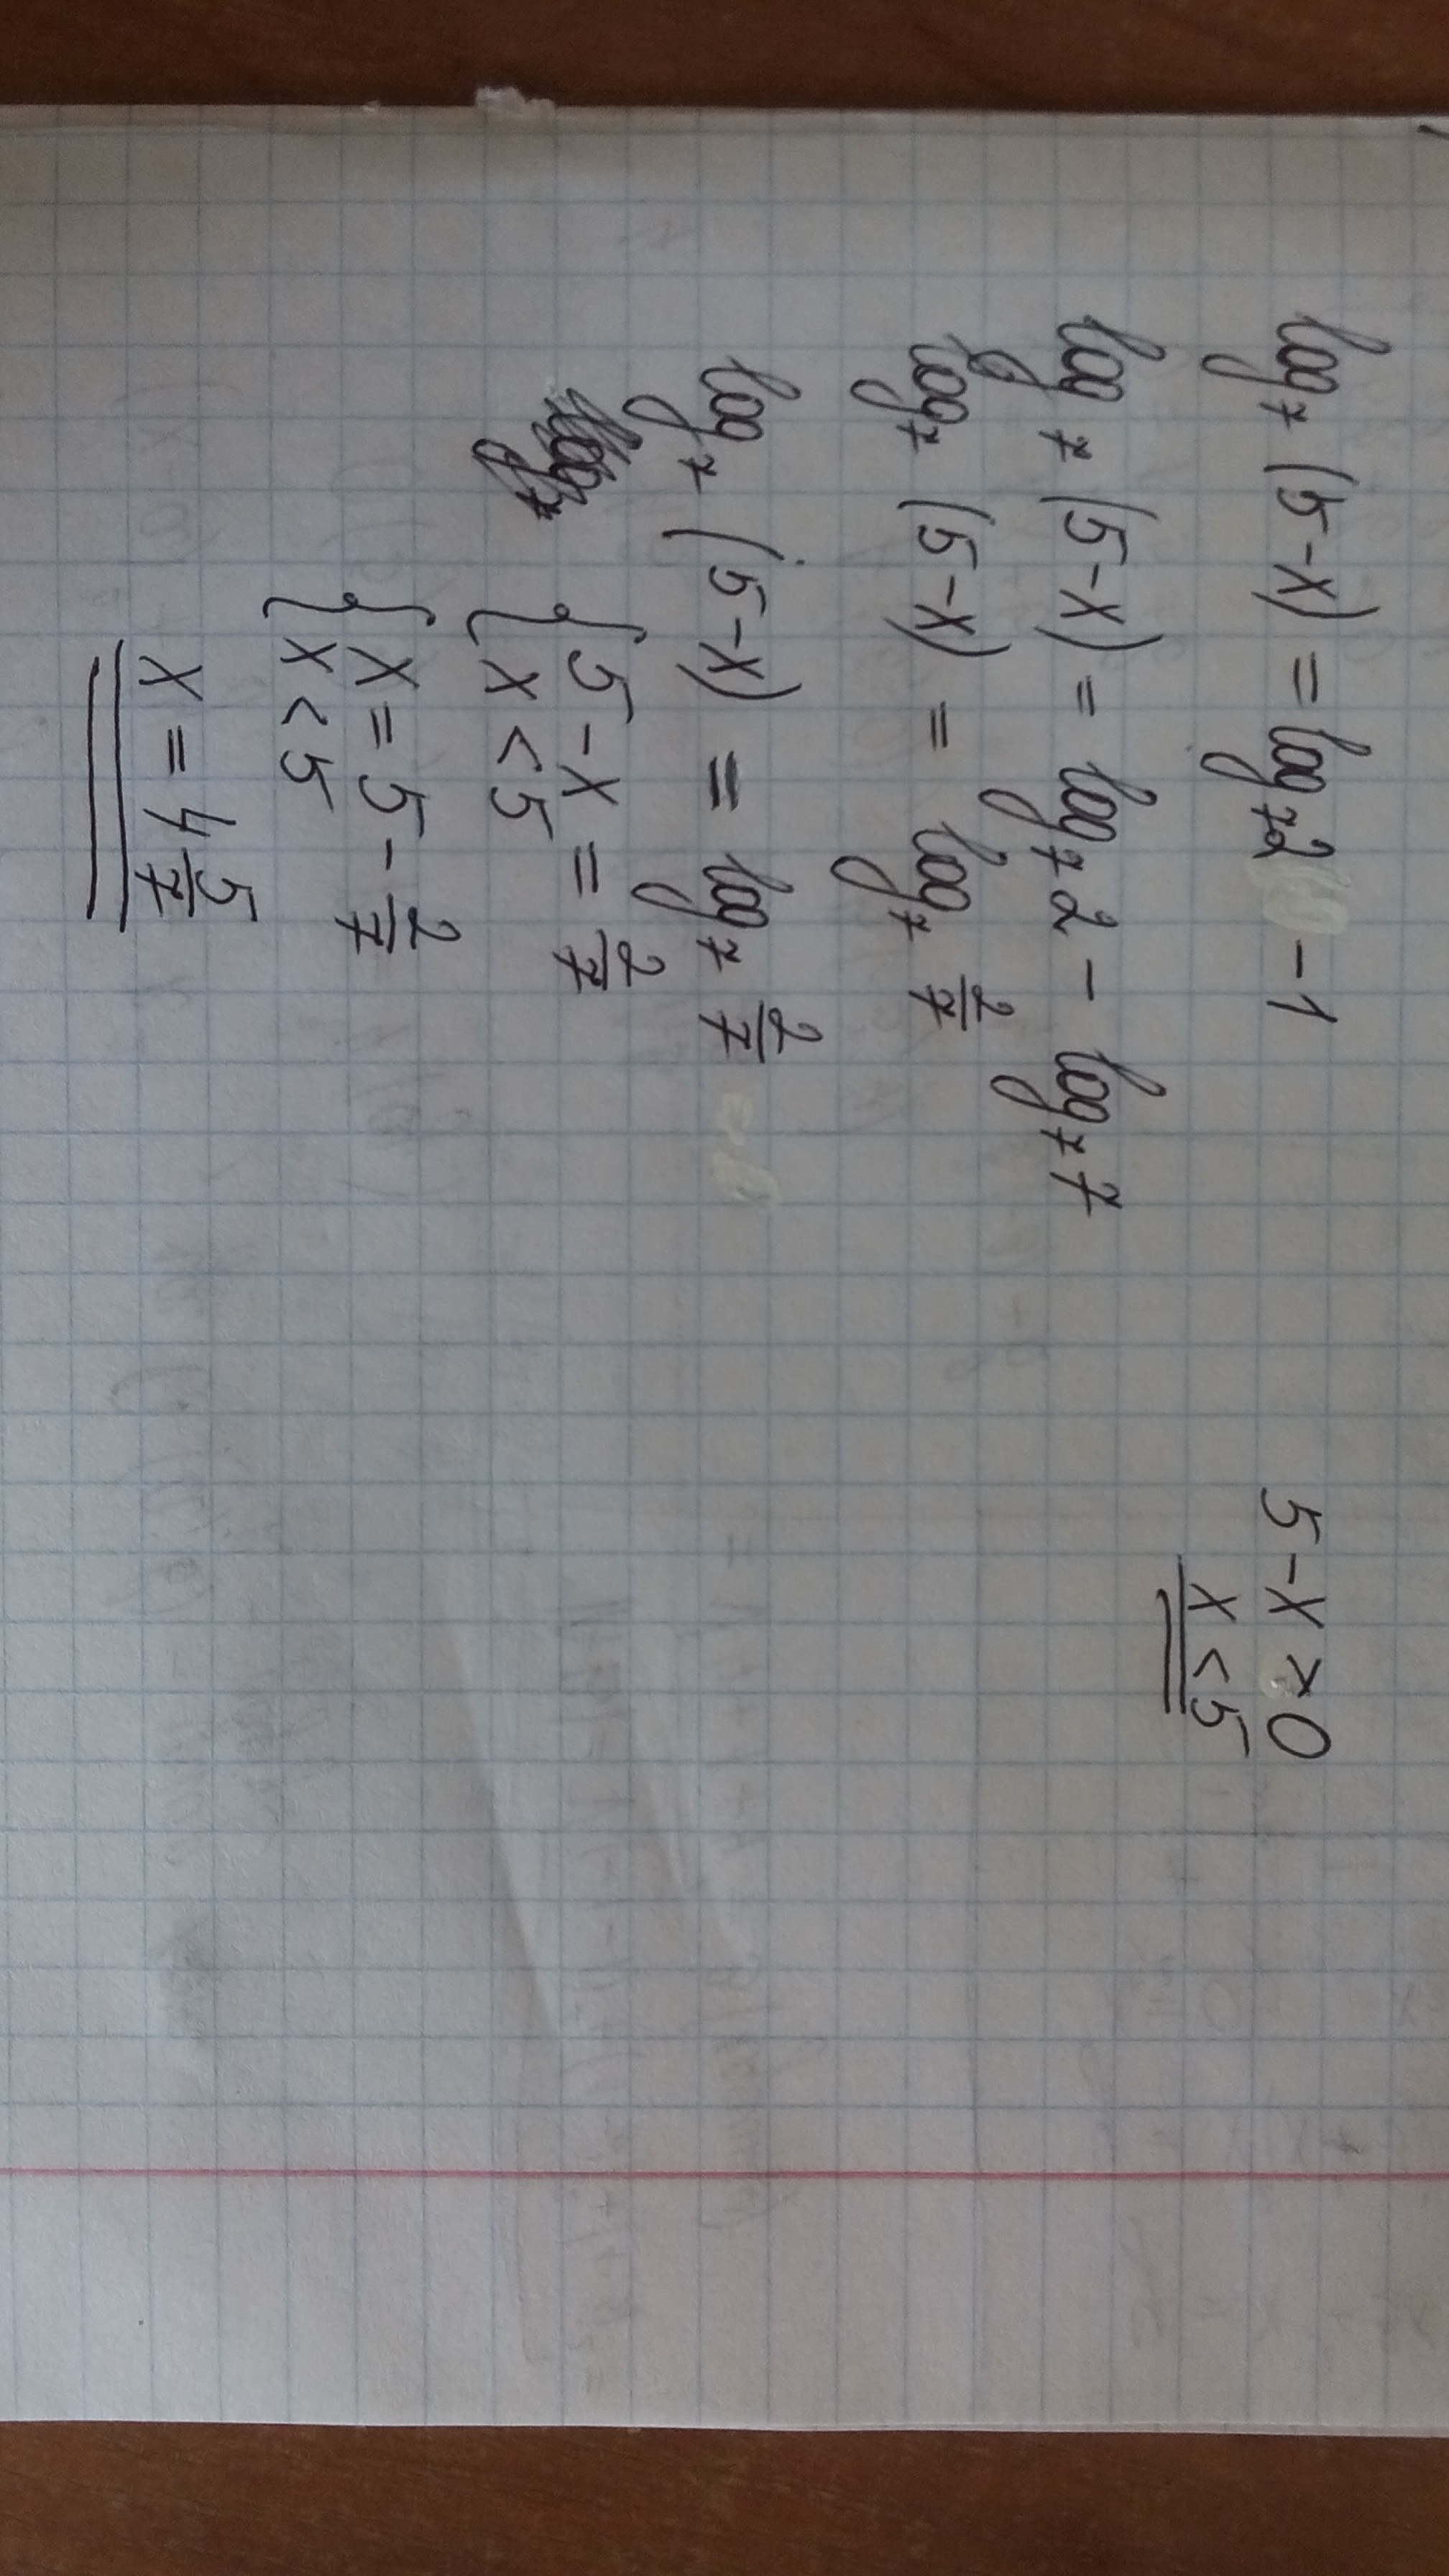 log₇ (5-x) = log₇2 -1
5-x > 0
x < 5
log₇ (5-x) = log₇2 - log₇7
log₇ (5-x) = log₇ 2/7
log₇ (5-x) = log₇ 2/7
{ 5-x = 2/7
x < 5
{ x = 5 - 2/7
x < 5
x = 4 5/7